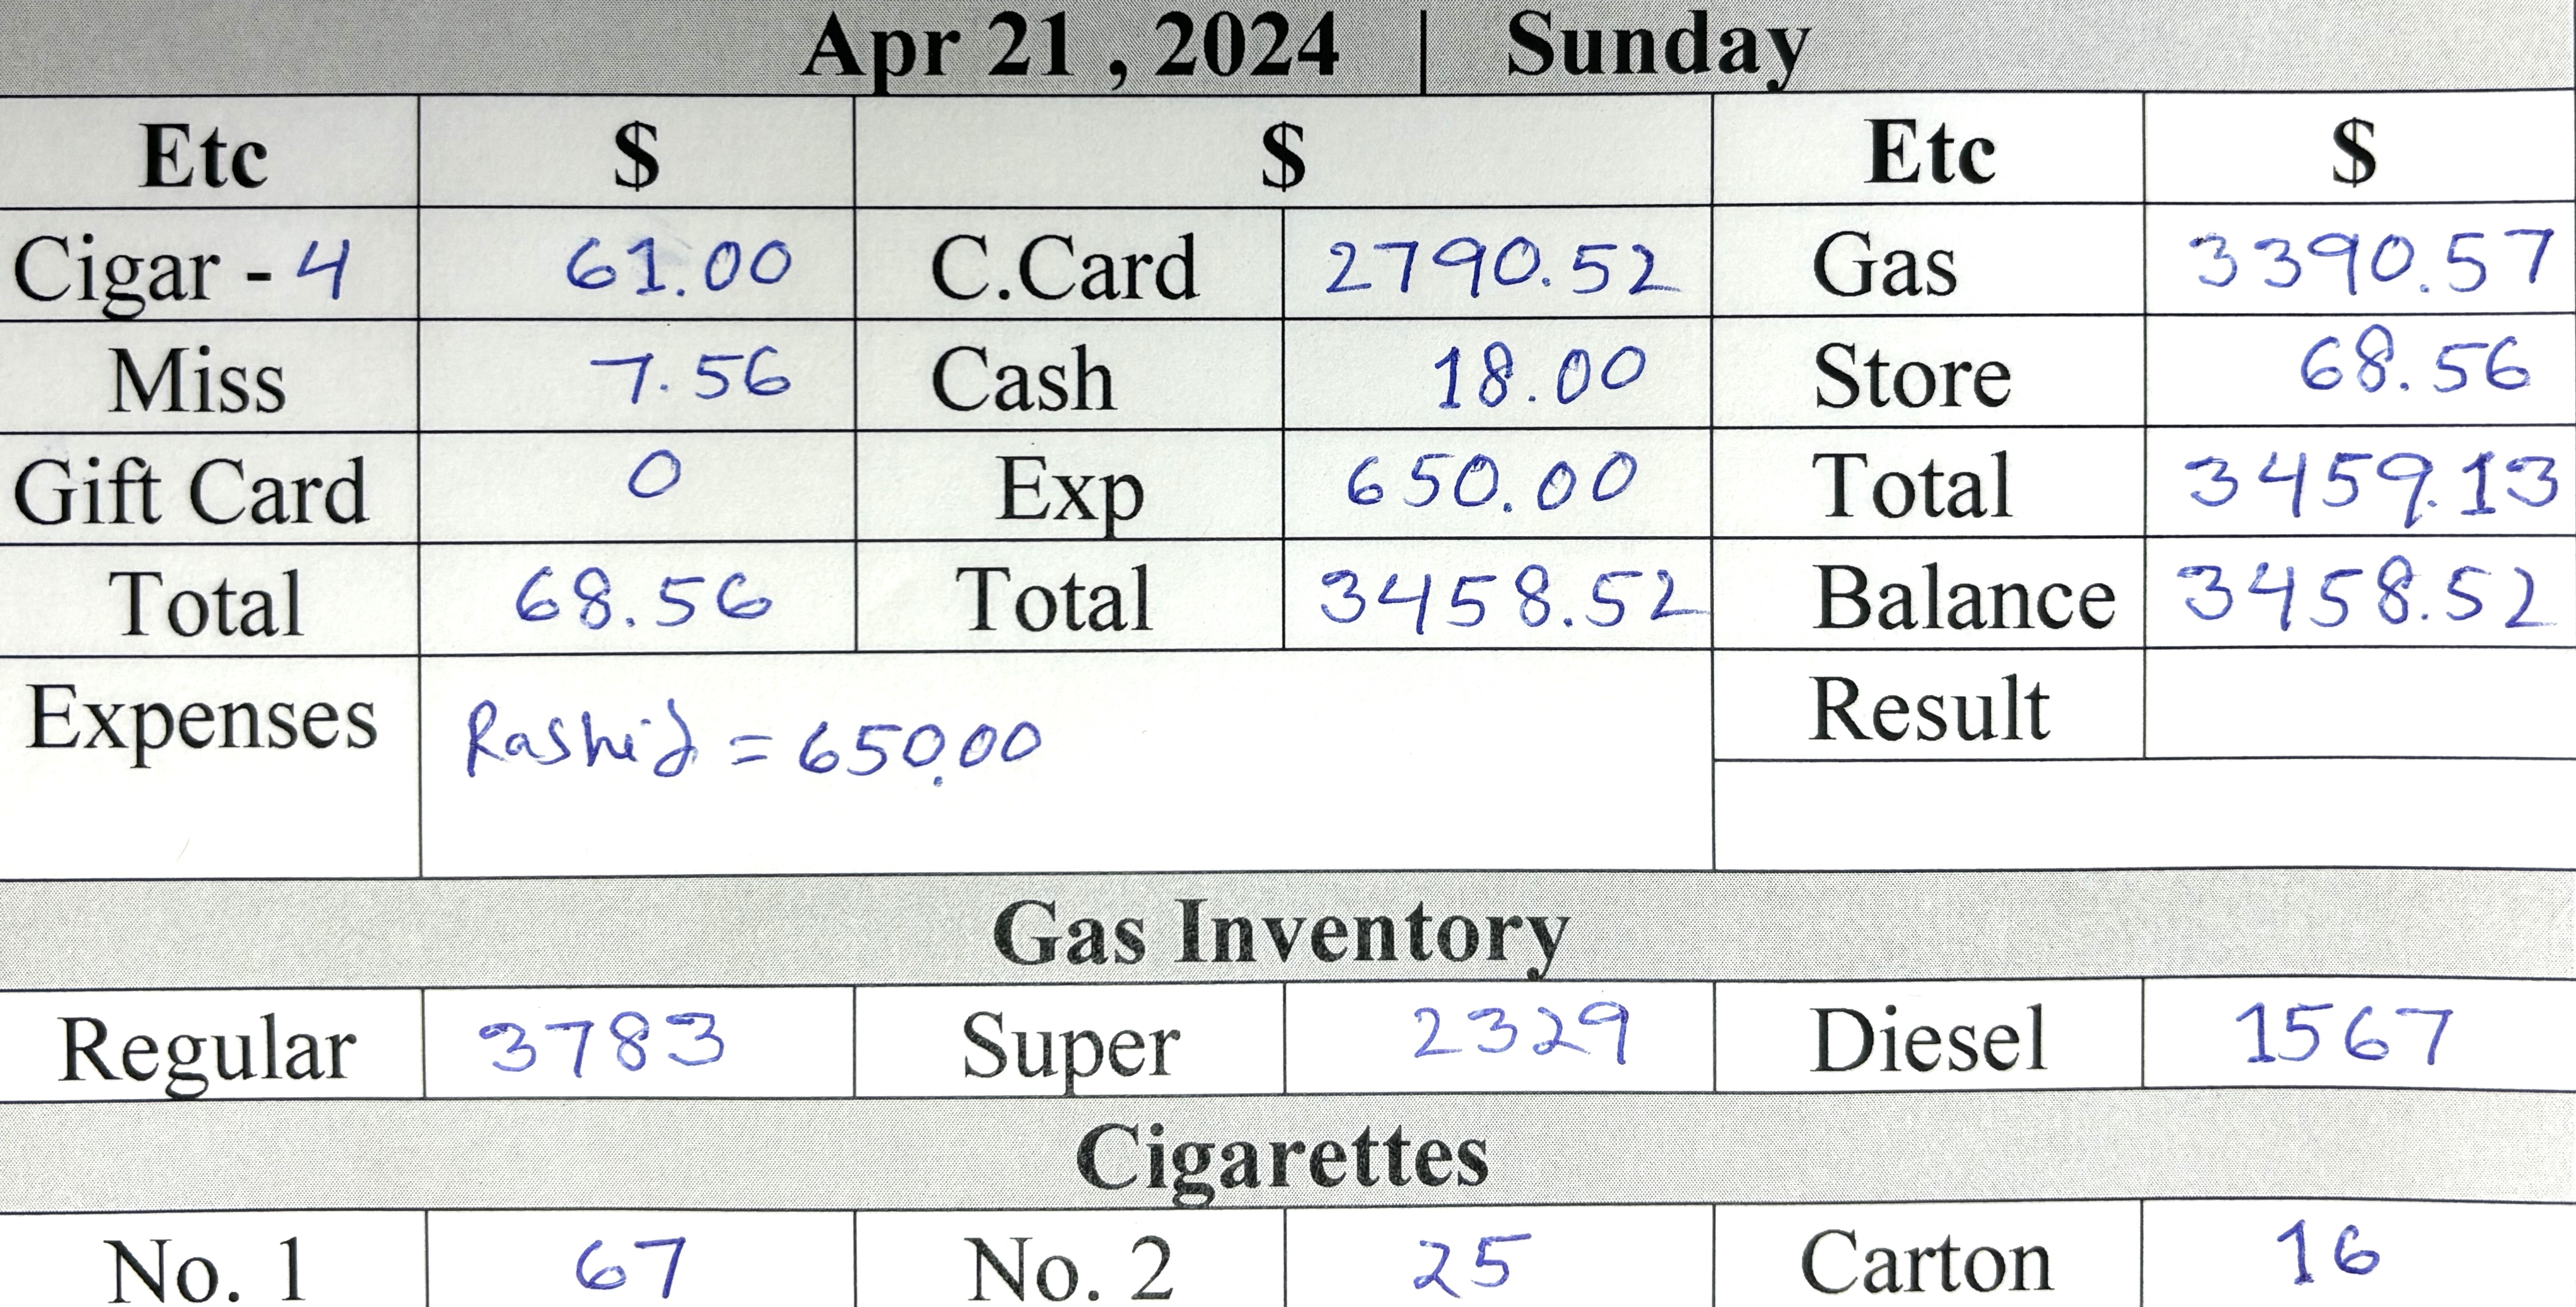 Apr 21 , 2024 | Sunday
Etc $ $ Etc $
Cigar - 4 61.00 C.Card 2790.52 Gas 3390.57
Miss 7.56 Cash 18.00 Store 68.56
Gift Card 0 Exp 650.00 Total 3459.13
Total 68.56 Total 3458.52 Balance 3458.52
Expenses Rashid = 650.00 Result
Gas Inventory
Regular 3783 Super 2329 Diesel 1567
Cigarettes
No. 1 67 No. 2 25 Carton 16